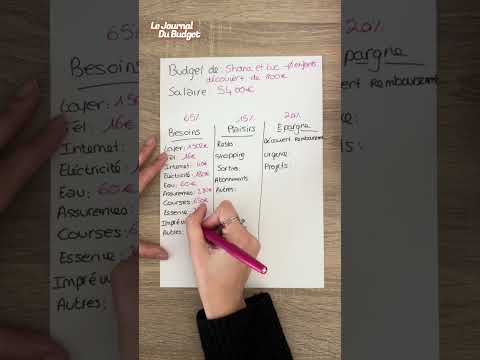 Le Journal
Du Budget
Budget de : Shana et Luc - Ø enfants
découvert de 1100€
Salaire : 5400€
65% 15% 20%
Besoins Plaisirs Epargne
Loyer: 1500€ Resto Découvert Remboursement
Tel: 16€ Shopping Urgence
Internet: 40€ Sorties Projets
Eléctricité: 180€ Abonnements
Eau: 60€ Autres:
Assurances:
Courses: 650€
Essence:
Imprévu
Autres:
65%
Besoins
Loyer: 150
Tel: 16€
Internet:
Eléctricité:
Eau: 60€
Assurances:
Courses:
Essence:
Imprévu
Autres:
20%
Epargne
découvert Remboursement